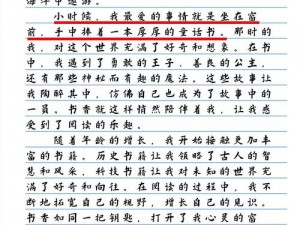 海洋中遨游。
小时候，我最爱的事情就是坐在窗
前，手中捧着一本厚厚的童话书。那时的
我，对这个世界充满了好奇和想象。在书
中，我遇到了勇敢的王子、善良的公主，
还有那些神秘而有趣的魔法。这些故事让
我陶醉其中，仿佛自己也成为了故事中的
一员。书香就这样悄然陪伴着我，让我感
受到了阅读的乐趣。
随着年龄的增长，我开始接触更加丰
富的书籍。历史书籍让我领略了古人的智
慧和风采，科技书籍让我对未知的世界充
满了好奇和向往。在阅读的过程中，我不
断地拓宽自己的视野，增长自己的见识。
书香如同一把钥匙，打开了我心灵的窗